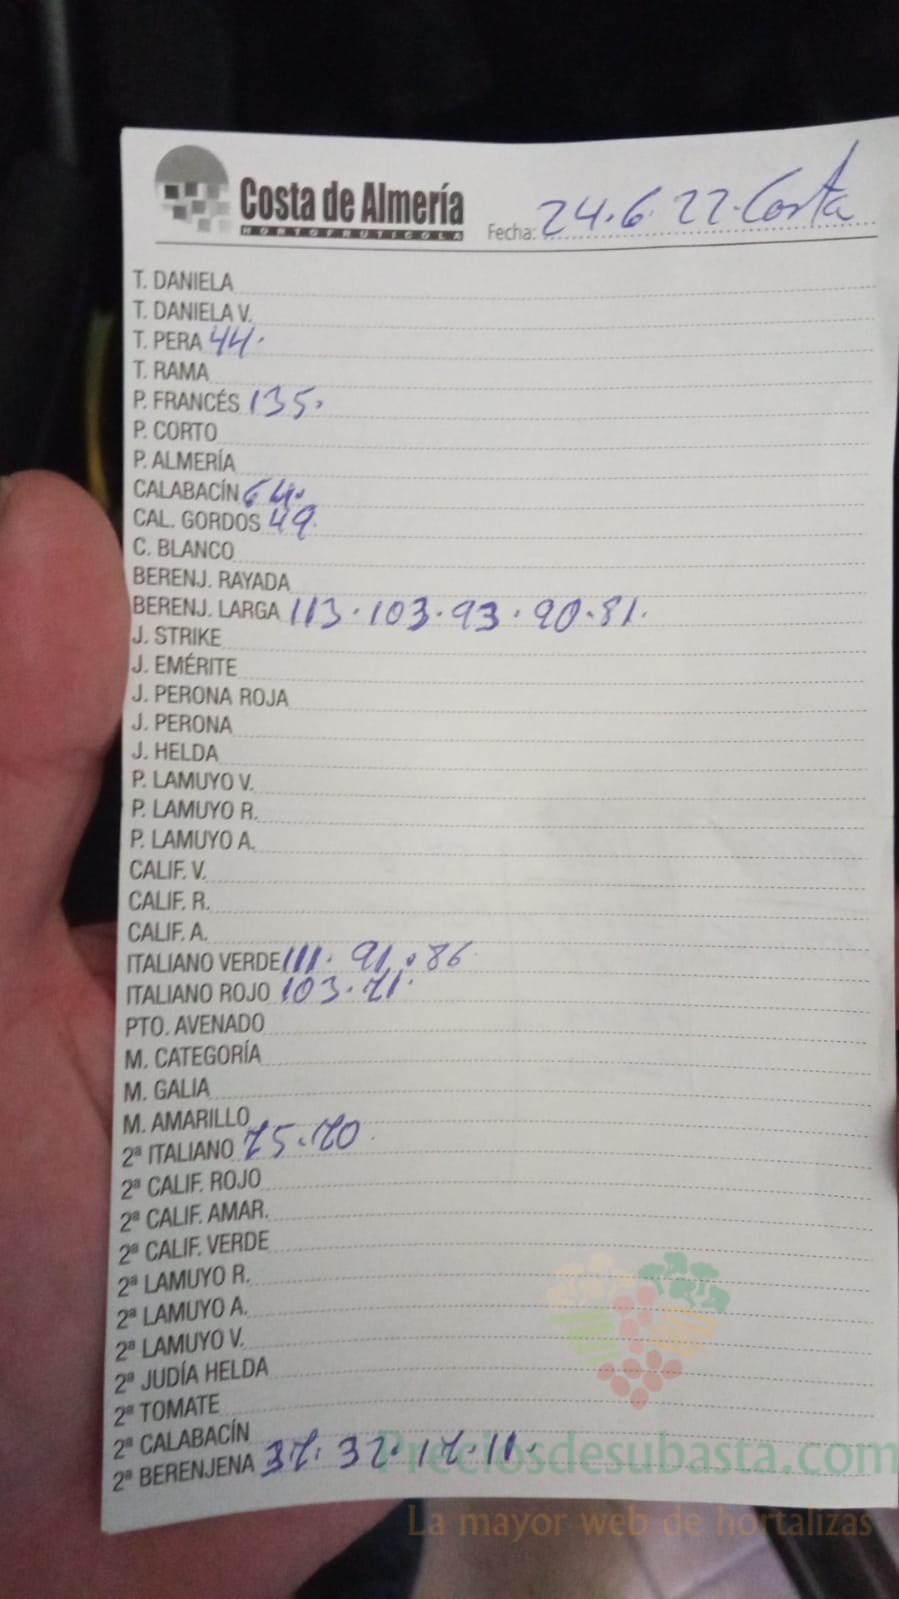 Costa de Almería
HORTOFRUTICOLA
Fecha: 24.6.22. Costa
T. DANIELA
T. DANIELA V.
T. PERA 44.
T. RAMA
P. FRANCÉS 135.
P. CORTO
P. ALMERÍA
CALABACÍN 64.
CAL. GORDOS 49.
C. BLANCO
BERENJ. RAYADA
BERENJ. LARGA 113.103.93.90.81.
J. STRIKE
J. EMÉRITE
J. PERONA ROJA
J. PERONA
J. HELDA
P. LAMUYO V.
P. LAMUYO R.
P. LAMUYO A.
CALIF. V.
CALIF. R.
CALIF. A.
ITALIANO VERDE 111. 91.86
ITALIANO ROJO 103.71.
PTO. AVENADO
M. CATEGORÍA
M. GALIA
M. AMARILLO
2ª ITALIANO 75.70.
2ª CALIF. ROJO
2ª CALIF. AMAR.
2ª CALIF. VERDE
2ª LAMUYO R.
2ª LAMUYO A.
2ª LAMUYO V.
2ª JUDÍA HELDA
2ª TOMATE
2ª CALABACÍN
2ª BERENJENA 37.32.17.11.
Preciosdesubasta.com
La mayor web de hortalizas